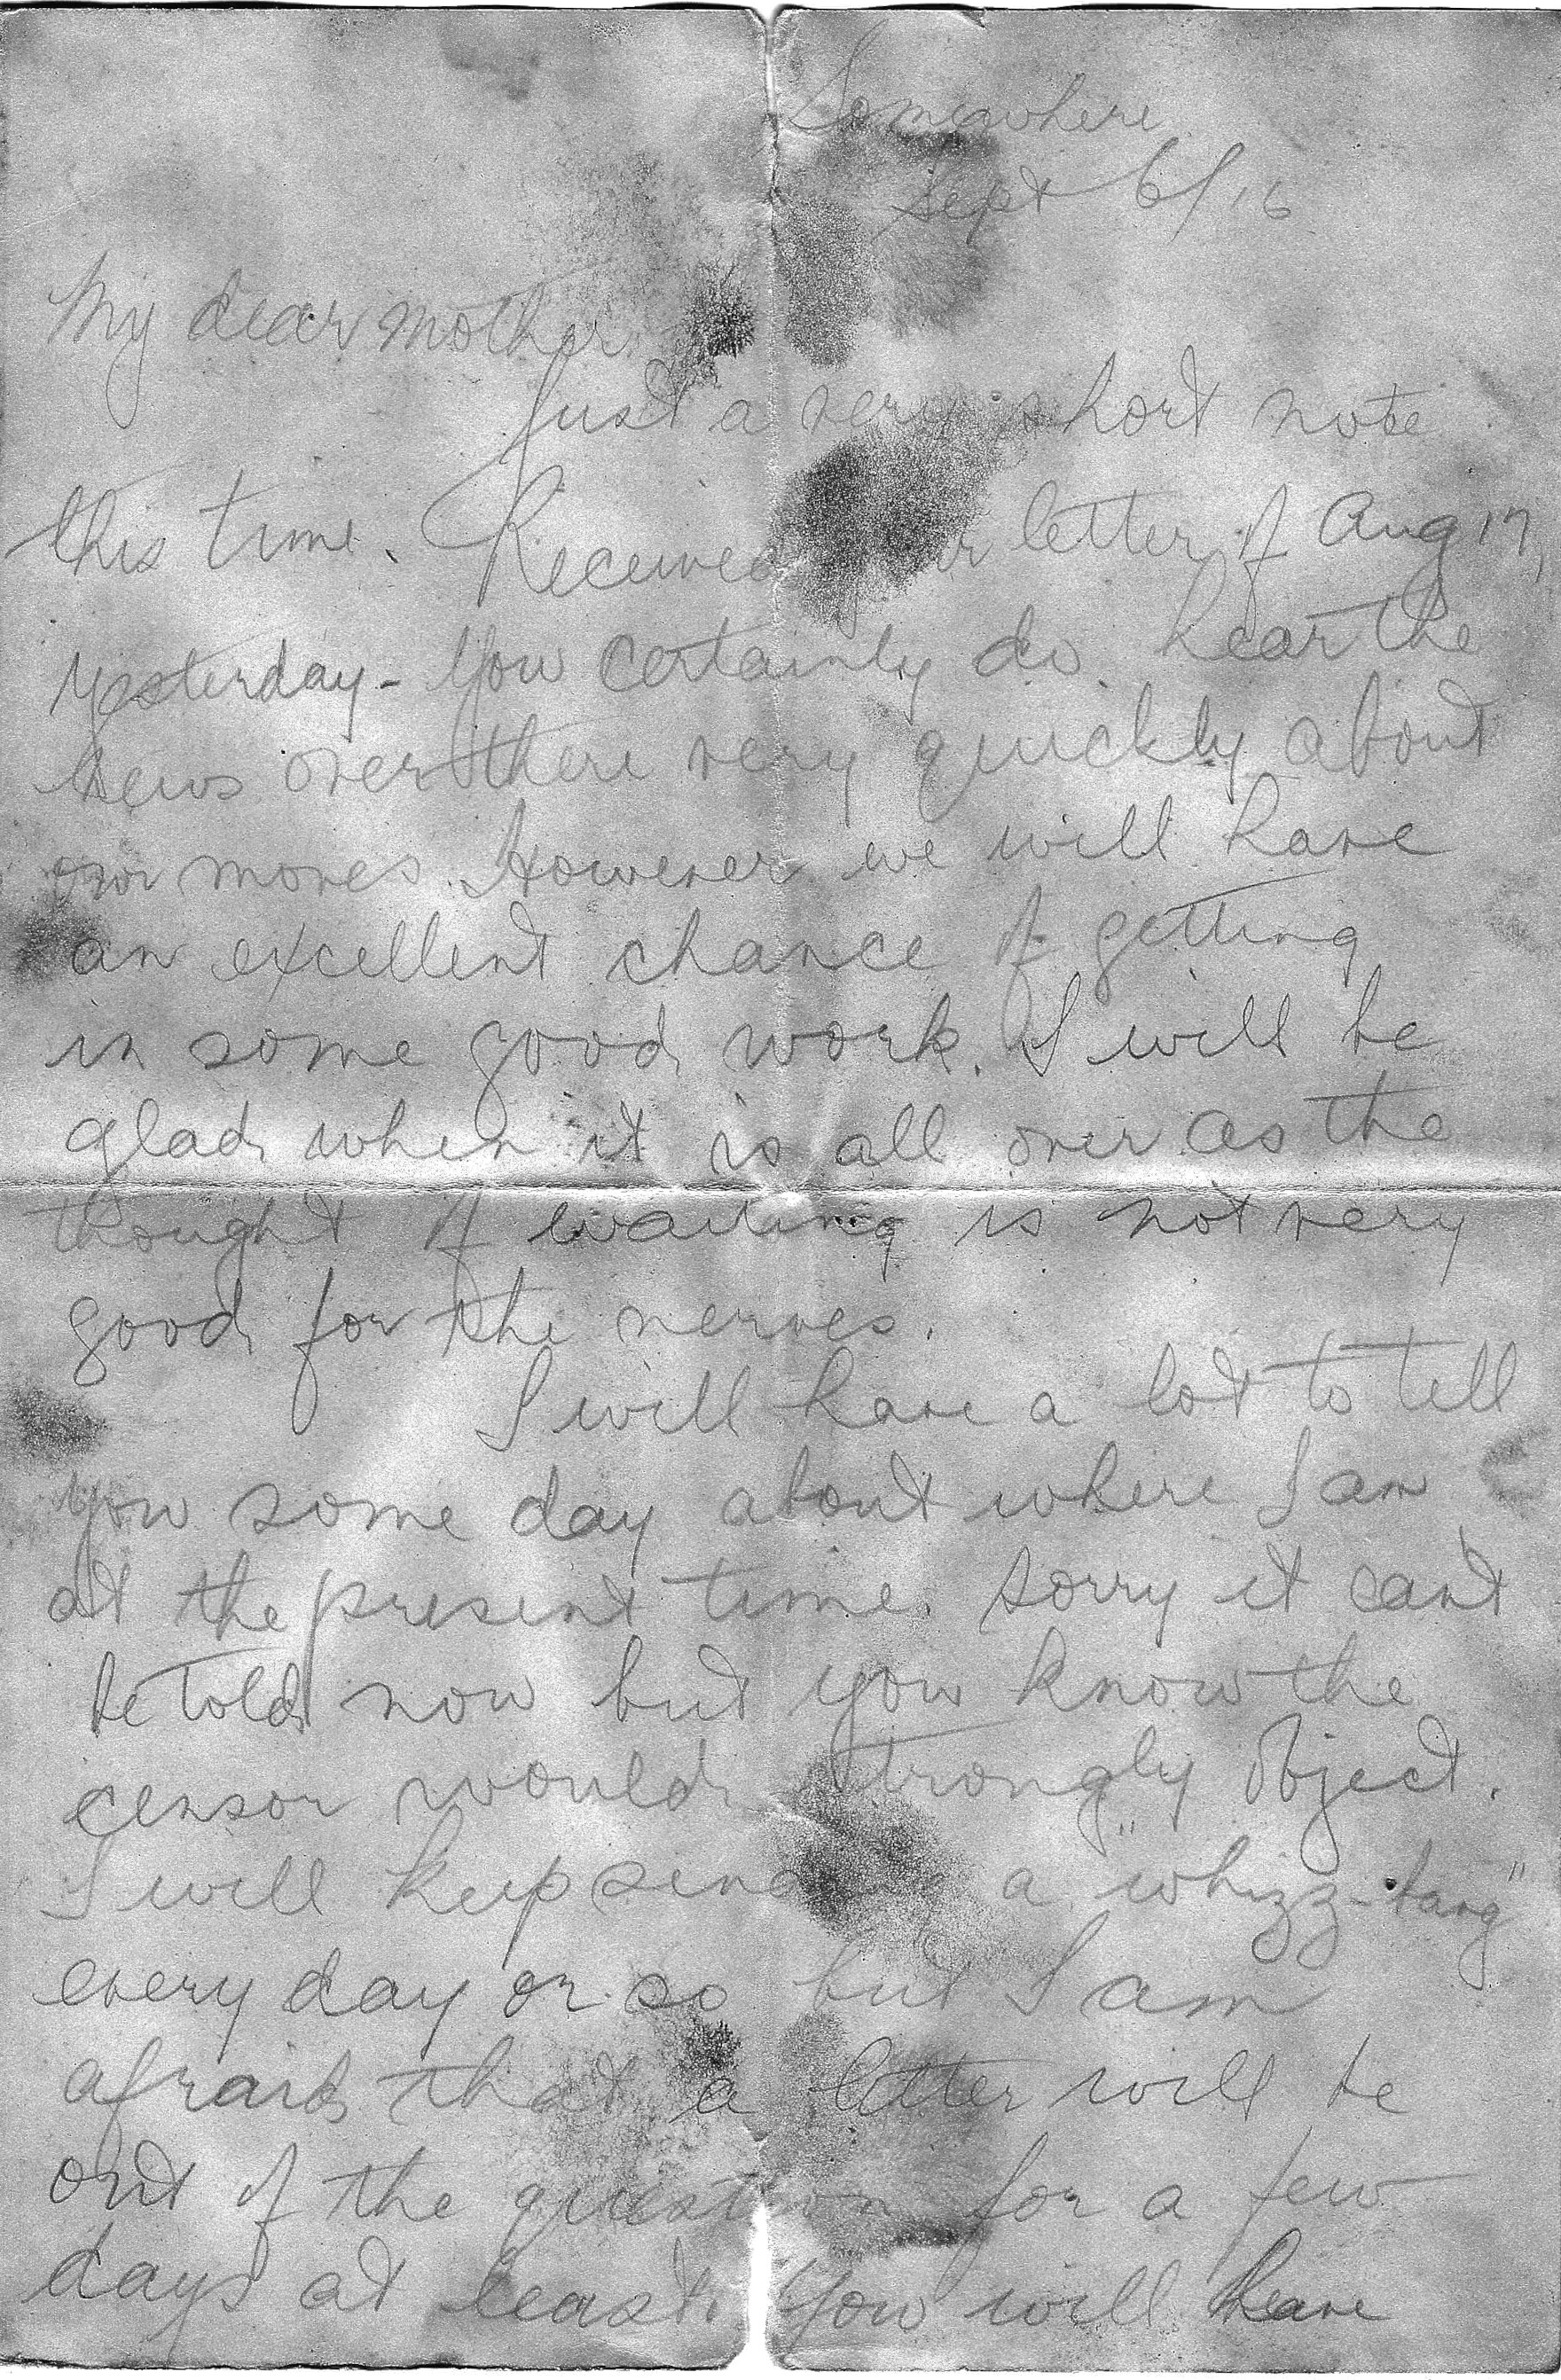 Somewhere
Sept 6/16
My dear mother
Just a very short note
this time. Received letter of Aug 17,
yesterday - You certainly do hear the
news over there very quickly about
our moves. However we will have
an excellent chance of getting
in some good work. I will be
glad when it is all over as the
thought of waiting is not very
good for the nerves.
I will have a lot to tell
you some day about where I am
at the present time. Sorry it cant
be told now but you know the
censor would strongly object.
I will keep a "whizz-bang"
every day or so but I am
afraid that a letter will be
out of the question for a few
days at least. You will have